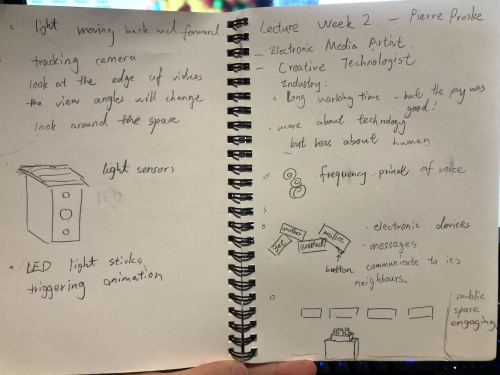 light moving back and forward
tracking camera
look at the edge of videos
the view angles will change
look around the space
light sensors
LED light sticks
triggering animation
Lecture Week 2. - Pierre Proske
- Electronic Media Artist.
- Creative Technologist
Industry:
Long working time - but the pay was
good!
more about technology
but less about human
frequency of voice
electronic devices
messages
communicate to it's
neighbours.
button
public
space
engaging